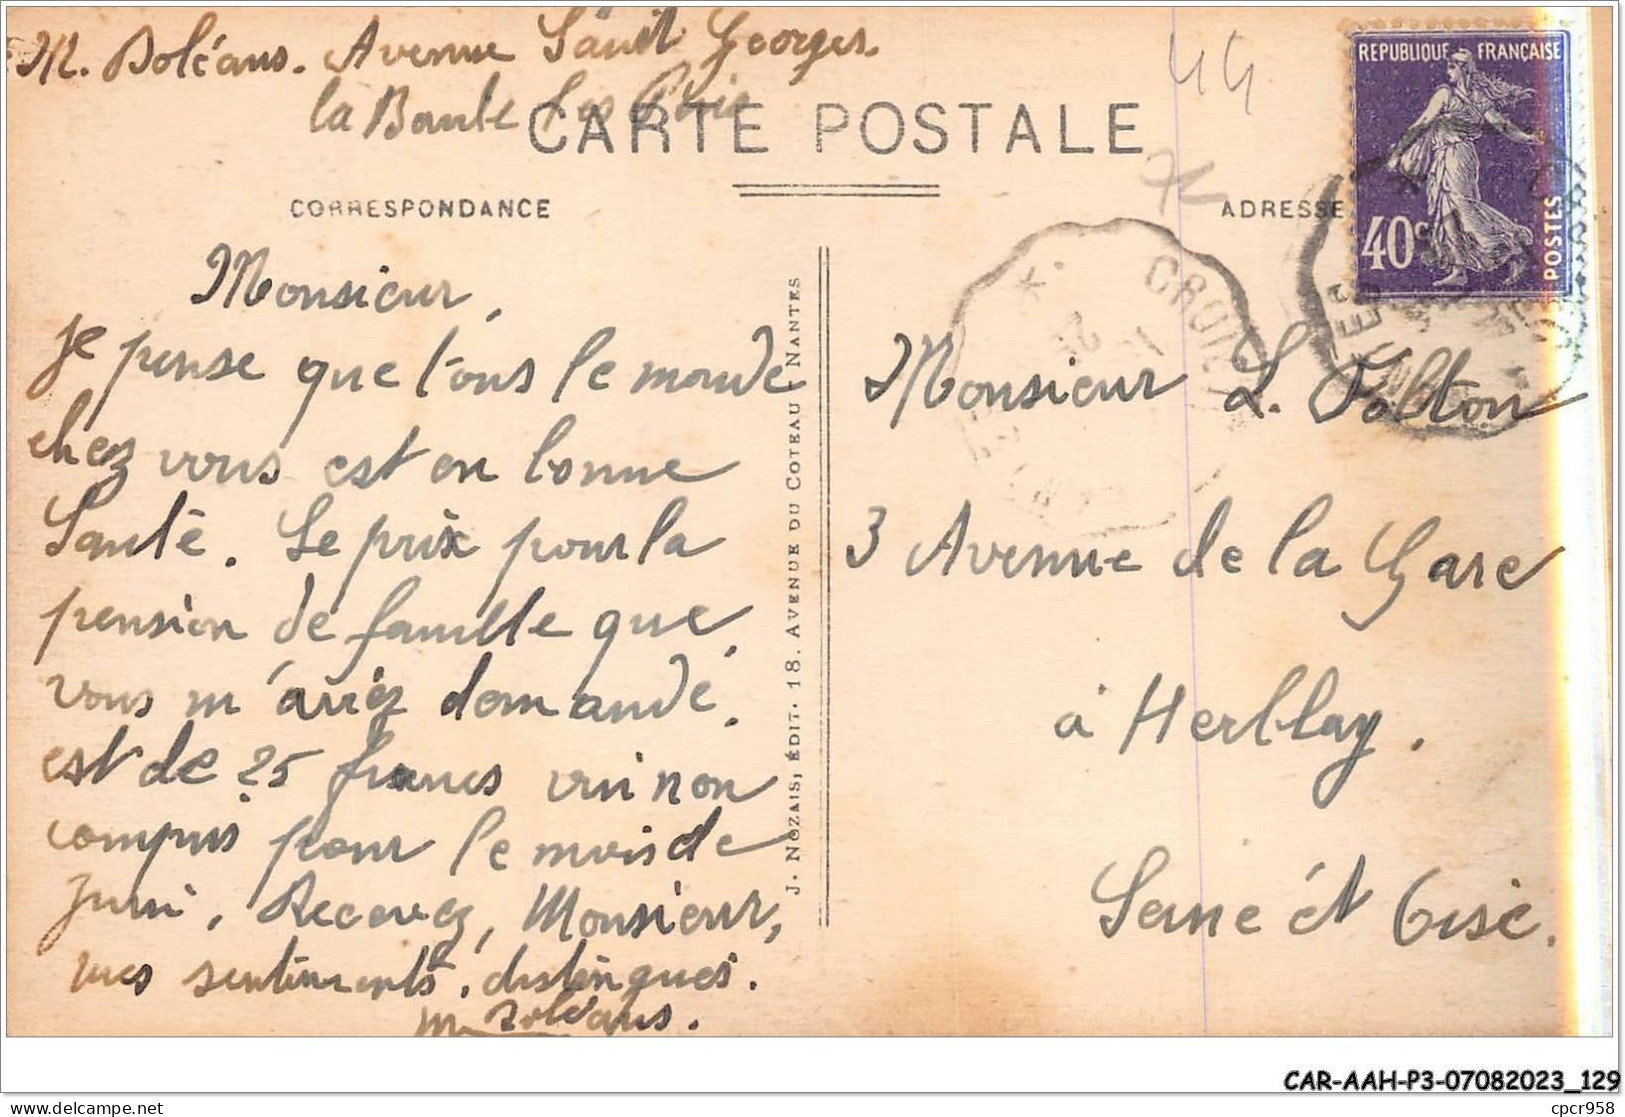 M. Doléans. Avenue Saint Georges.
la Baule les Pins
CARTE POSTALE
CORRESPONDANCE
ADRESSE
44
REPUBLIQUE FRANÇAISE
40c
POSTES
Monsieur,
je pense que tous le monde
chez vous est en bonne
Santé. Le prix pour la
pension de famille que,
vous m'aviez demandé,
est de 25 francs vin non
compris pour le mois de
juin, Recevez, Monsieur,
mes sentiments, distingués.
M Doléans.
J. NOZAIS, ÉDIT. 18. AVENUE DU COTEAU NANTES
Monsieur L. Tolton
3 Avenue de la Gare
à Herblay.
Seine ét Oise.
CAR-AAH-P3-07082023_129
delcampe.net
cpcr958